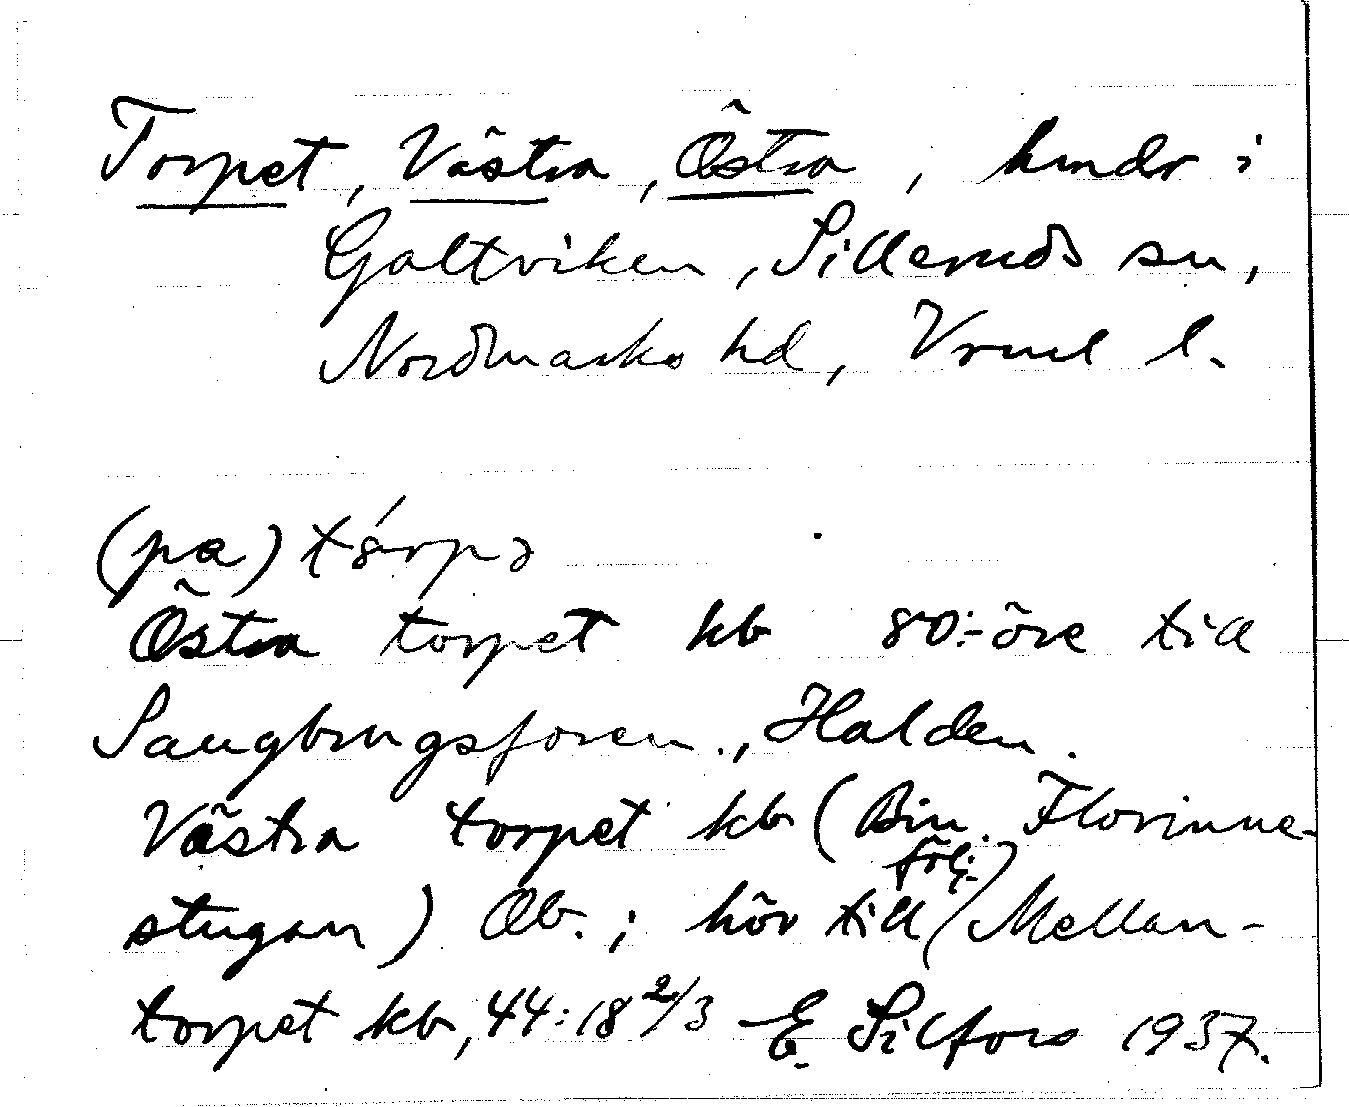 Torpet, Västra, Östra, hmdr i
Galtviken, Silleruds sn,
Nordmarks hd, Vrml l.
(pa) tórpə
Östra torpet kb 80:-öre till
Saugbrugsforen., Halden.
Västra torpet kb (Bin. Florinne-
stugan) Ob.; hör till
följ.
Mellan-
torpet kb, 44:18 2/3 E. Silfors 1937.